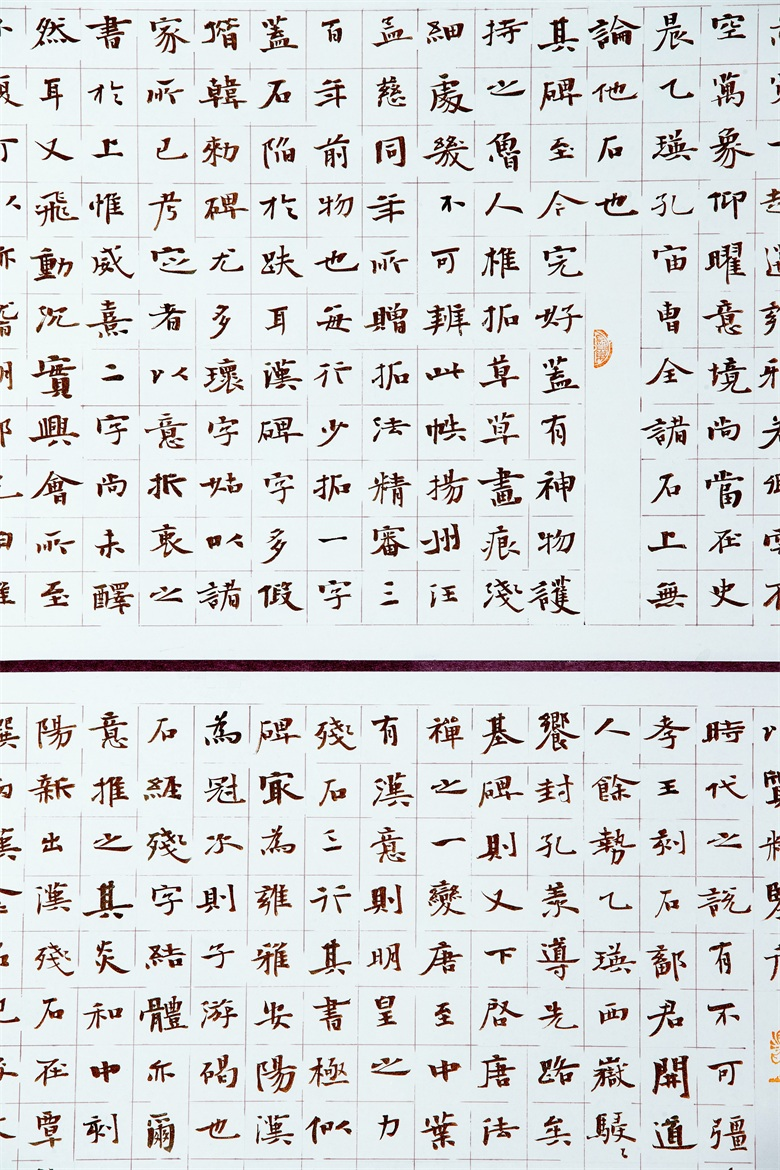 空萬象仰曜意境尚當在史
晨乙瑛孔宙曹全諸石上無
論他石也
其碑至今完好蓋有神物護
持之魯人椎拓草草畫痕淺
細處幾不可辨此帙揚州汪
孟慈同年所贈拓法精審三
百年前物也每行少拓一字
蓋石陷於趺耳漢碑字多假
借韓勑碑尤多瓌字姑以諸
家所已考定者以意折衷之
書於上惟威熹二字尚未醳
然耳又飛動沉實興會所至
時代之說有不可彊
孝王刻石鄐君開道
人餘勢乙瑛西嶽駸々
饗封孔羨導先路矣
基碑則又下啓唐法
禪之一變唐至中葉
有漢意則明皇之力
殘石三行其書極似
碑冣為雍雅安陽漢
為冠次則子游碣也
石經殘字結體亦爾
意推之其炎和中刻
陽新出漢殘石在覃